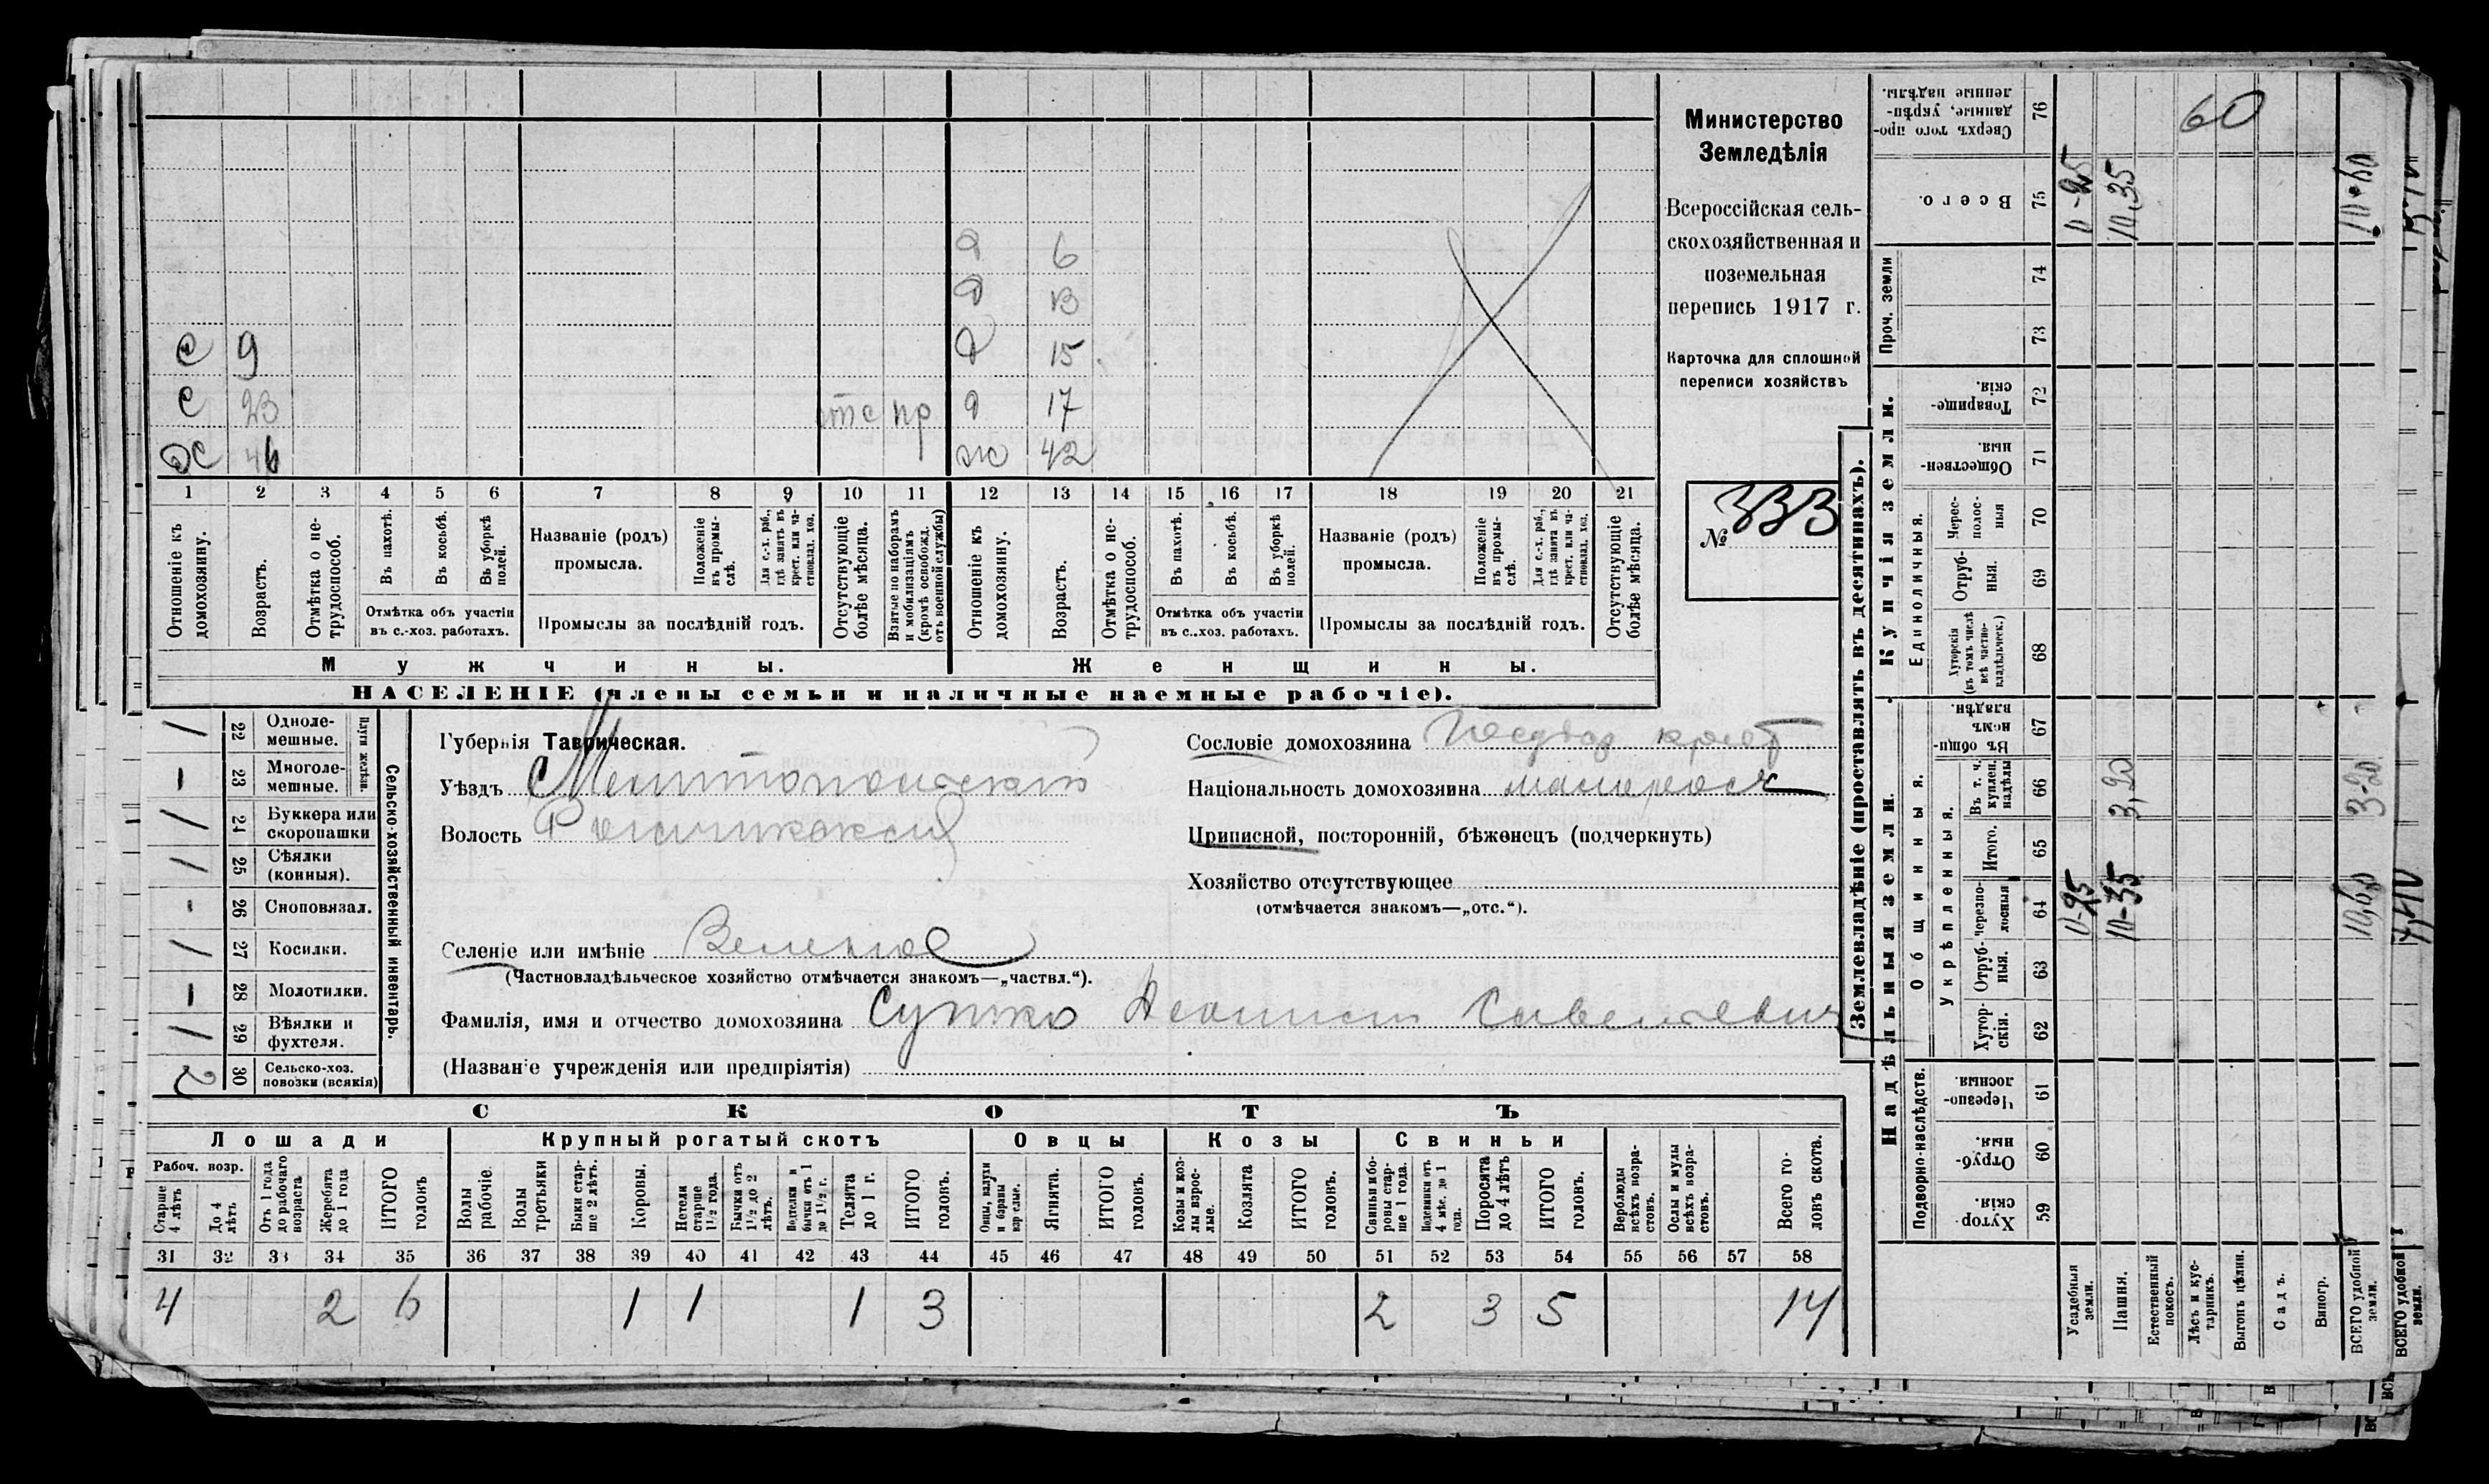 Министерство
Земледѣлія
Всероссійская сель-
скохозяйственная и
поземельная
перепись 1917 г.
Карточка для сплошной
переписи хозяйствъ
№ 333
д 6
д 13
д 15
с 9
с 23 отс пр д 17
дс 46 ж 42
1 2 3 4 5 6 7 8 9 10 11 12 13 14 15 16 17 18 19 20 21
Отношеніе къ домохозяину.
Возрастъ.
Отмѣтка о не-трудоспособ.
Въ пахотѣ.
Въ косьбѣ.
Въ уборкѣ полей.
Отмѣтка объ участіи
въ с.-хоз. работахъ.
Названіе (родъ)
промысла.
Положеніе въ промы-слѣ.
Для с.-х. раб., гдѣ занятъ въ крест. или ча-стновлад. хоз.
Промыслы за послѣдній годъ.
Отсутствующіе болѣе мѣсяца.
Взятые по наборамъ и мобилизаціямъ (кромѣ освобожд. отъ военной службы)
Отношеніе къ домохозяину.
Возрастъ.
Отмѣтка о не-трудоспособ.
Въ пахотѣ.
Въ косьбѣ.
Въ уборкѣ полей.
Отмѣтка объ участіи
въ с..хоз. работахъ.
Названіе (родъ)
промысла.
Положеніе въ промы-слѣ.
Для с.-х. раб., гдѣ занята въ крест. или ча-стновлад. хоз.
Промыслы за послѣдній годъ.
Отсутствующіе болѣе мѣсяца.
Мужчины. Женщины.
НАСЕЛЕНІЕ (члены семьи и наличные наемные рабочіе).
Сельско-хозяйственный инвентарь.
Плуги желѣзн.
1 22 Одноле-мешные.
– 23 Многоле-мешные.
1 24 Буккера или скоропашки
1 25 Сѣялки (конныя).
- 26 Сноповязал.
1 27 Косилки.
– 28 Молотилки.
1 29 Вѣялки и фухтеля.
2 30 Сельско-хоз. повозки (всякія)
Губернія Таврическая.
Уѣздъ Мелитопольскій
Волость
Селеніе или имѣніе
(Частновладѣльческое хозяйство отмѣчается знакомъ—„частвл.“).
Фамилія, имя и отчество домохозяина Савельевич
(Названіе учрежденія или предпріятія)
Сословіе домохозяина крест
Національность домохозяина малоросс
Приписной, посторонній, бѣженецъ (подчеркнуть)
Хозяйство отсутствующее
(отмѣчается знакомъ—„отс.“).
СКОТЪ
Лошади Крупный рогатый скотъ Овцы Козы Свиньи
Рабоч. возр.
Старше 4 лѣтъ
До 4 лѣтъ
Отъ 1 года до рабочаго возраста
Жеребята до 1 года
ИТОГО головъ
Волы рабочіе.
Волы третьяки
Быки стар-ше 2 лѣтъ.
Коровы.
Нетели старше 1½ года.
Бычки отъ 1½ до 2 лѣтъ.
Подтелки и бычки отъ 1 до 1½ г.
Телята до 1 г.
ИТОГО головъ.
Овцы, валухи и бараны взрослые.
Ягнята.
ИТОГО головъ.
Козы и коз-лы взрос-лые.
Козлята
ИТОГО головъ.
Свиньи и бо-ровы стар-ше 1 года.
Подсвинки отъ 4 мѣс. до 1 года.
Поросята до 4 лѣтъ
ИТОГО головъ.
Верблюды всѣхъ возра-стовъ.
Ослы и мулы всѣхъ возра-стовъ.
Всего го-ловъ скота.
31 32 33 34 35 36 37 38 39 40 41 42 43 44 45 46 47 48 49 50 51 52 53 54 55 56 57 58
4 2 6 1 1 1 3 2 3 5 14
Землевладѣніе (проставлять въ десятинахъ).
Надѣльныя земли. Купчія земли. Проч. земли
Подворно-наслѣдств. Общинныя. Укрѣпленныя. Единоличныя.
Хутор-скія. 59
Отруб-ныя. 60
Черезпо-лосныя. 61
Хутор-скія. 62
Отруб-ныя. 63
черезпо-лосныя 64
Итого. 65
Въ т. ч. куплен. надѣлы 66
Въ общи-номъ владѣн. 67
Хуторскія (въ томъ числѣ всѣ частно-владѣльческ.) 68
Отруб-ныя. 69
Черес-полос-ныя 70
Обществен-ныя. 71
Товарище-скія. 72
73
74
Всего. 75
Сверхъ того про-данные, укрѣп-ленные надѣлы. 76
Усадебныя земли. 0-25 0-25
Пашня. 10-35 3,20 10,35
Естественный покосъ.
Лѣсъ и кус-тарникъ. 60
Выгонъ цѣлин.
Садъ.
Виногр.
ВСЕГО удобной земли. 10,60 3-20 10-60
ВСЕГО удобной земли.